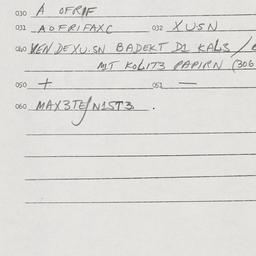 030 A OFRIF
031 AOFRIFAXC 032 XUSN
040 VEN DEXU.SN BADEKT D1 KAL3 /
MT KOLIT3 PAPIRN (306
050 + 051 —
060 MAX3TE/N1ST3.